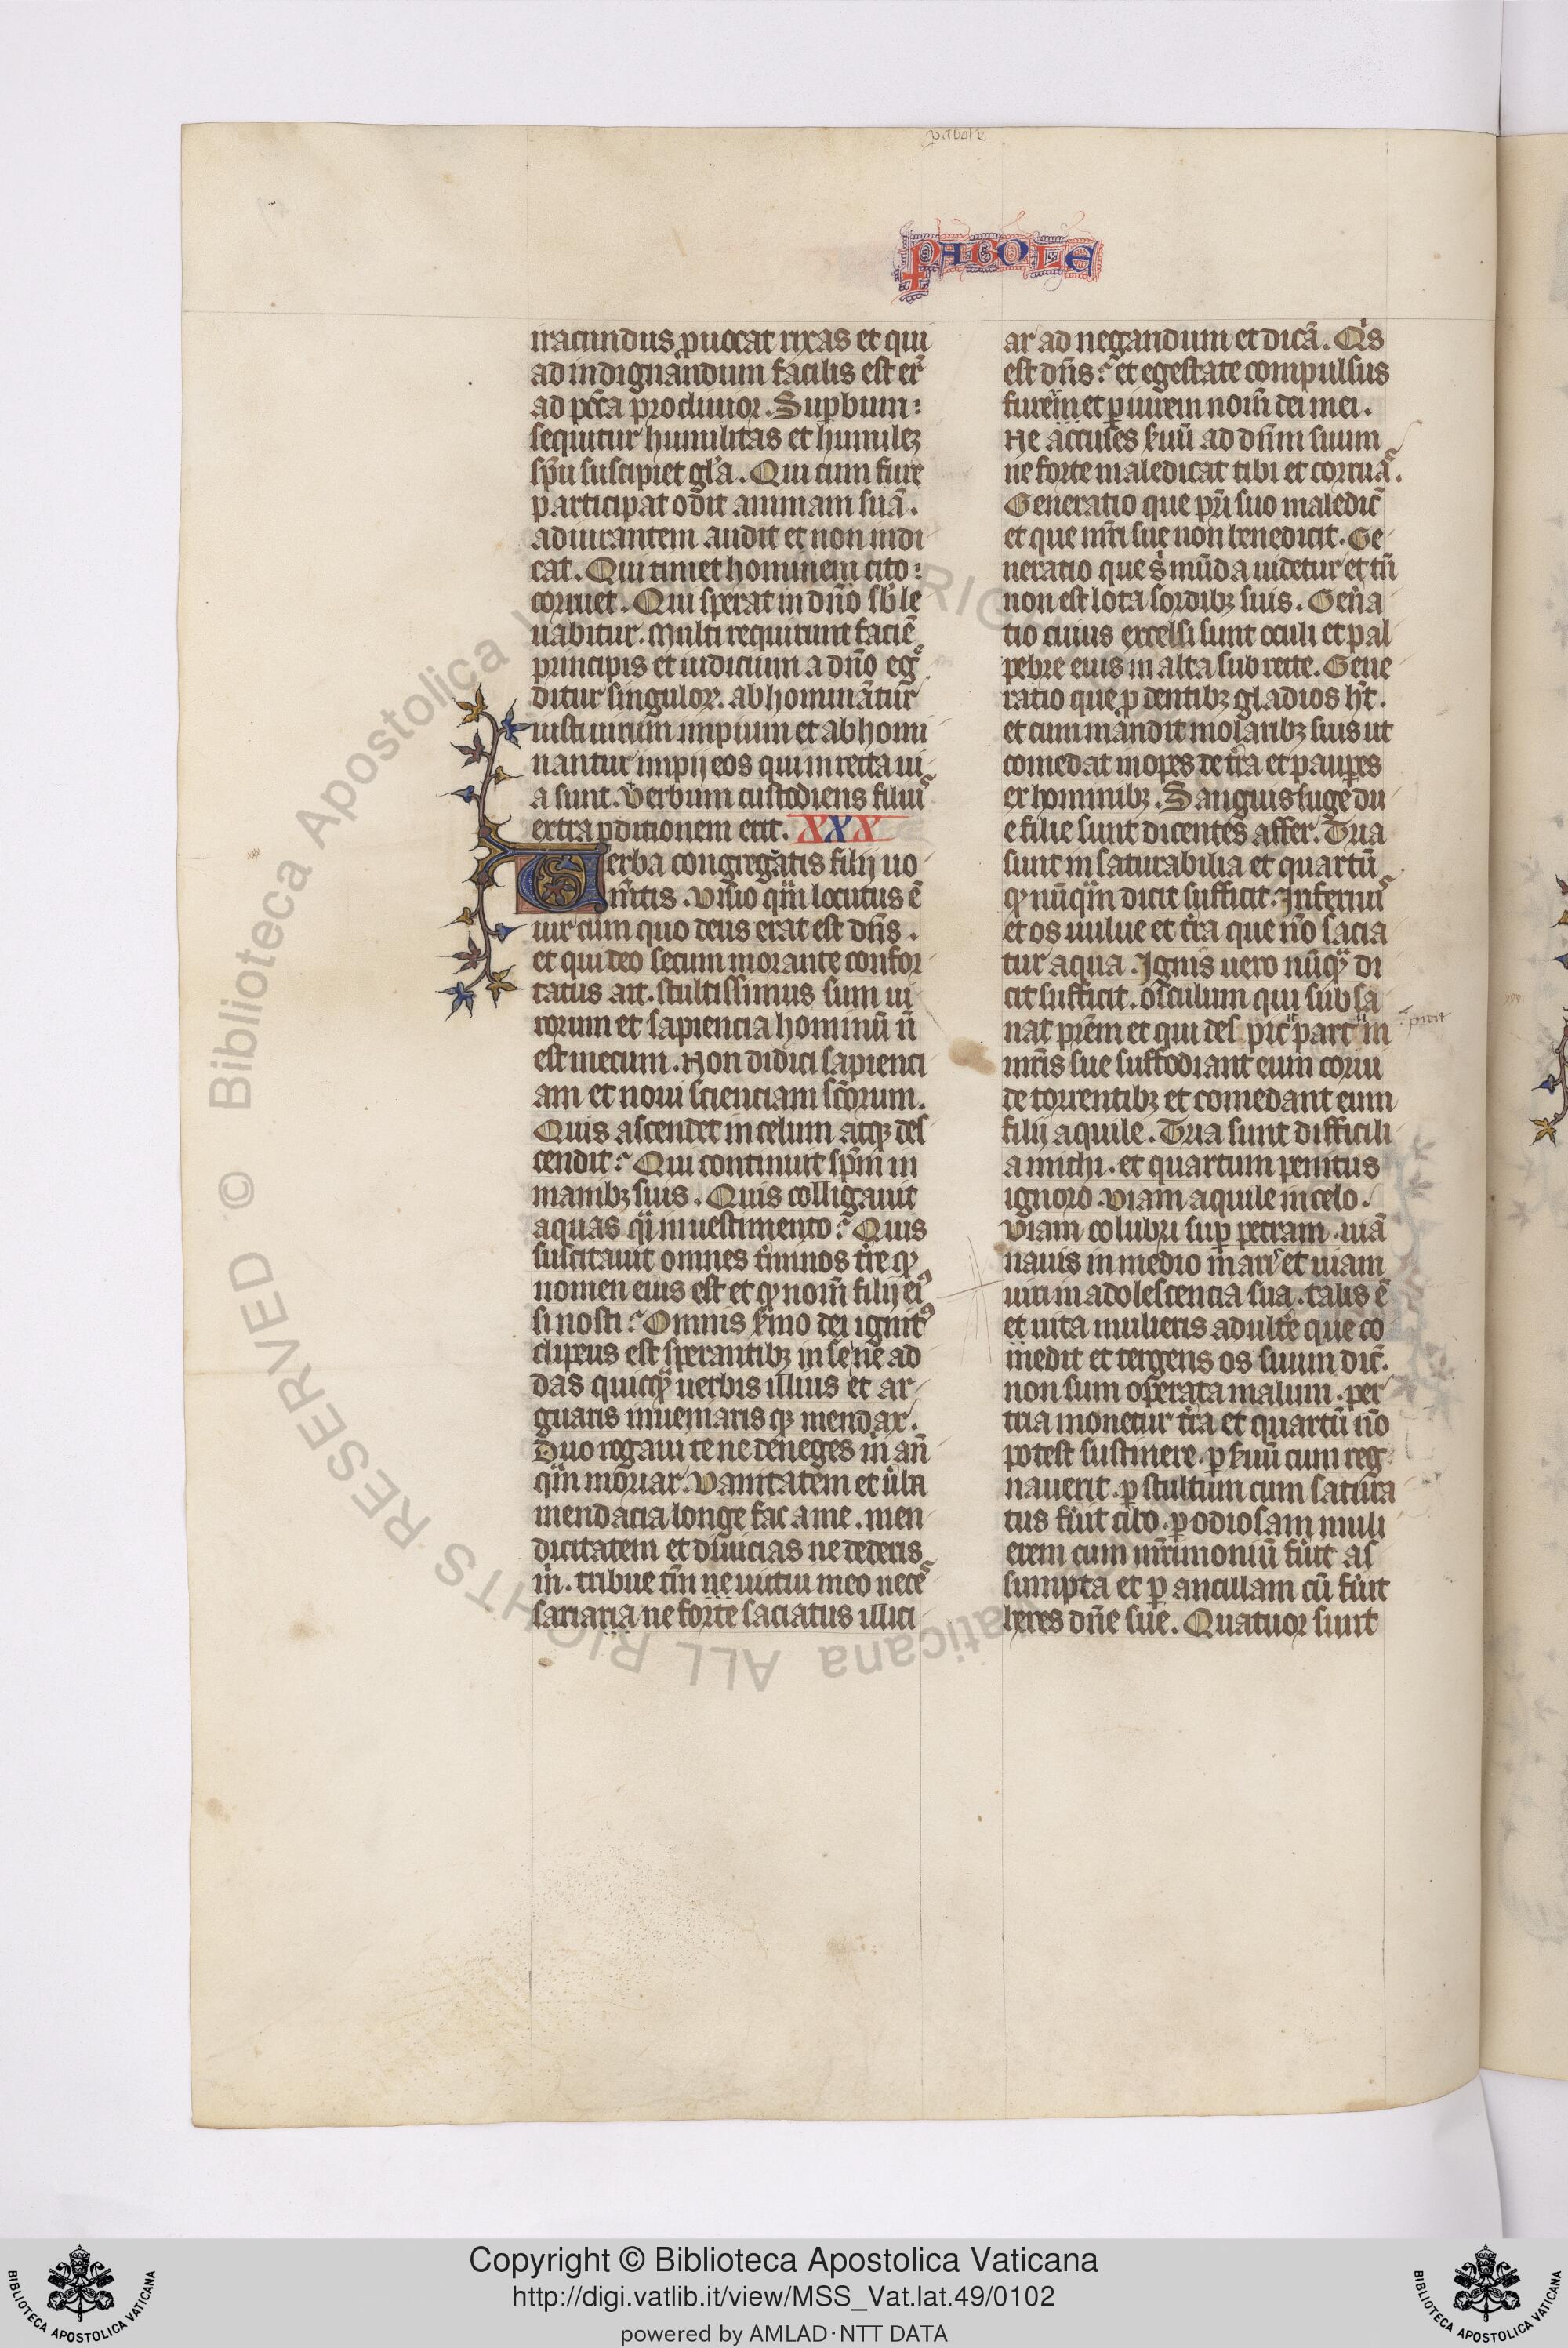 pabole
PABOLE
iracundus ꝓuocat rixas et qui
ad indignandum facilis est er͛
ad pcc̄a procliuior. Suꝑbum:
sequitur humilitas et humileꝫ
sp̄u suscipiet gl̄a. Qui cum fure
participat odit animam suā.
adiurantem audit et non indi
cat. Qui timet hominem cito:
corruet. Qui sperat in dn̄o sb̾le
uabitur. Multi requirunt faciē
principis et iudicium a dn̄o eg͛
ditur singuloꝝ. abhominātur
iusti uirum impium et abhomi
nantur impij eos qui in recta ui
a sunt. Verbum custodiens filiu᷒
extra ꝑditionem erit. XXX
Verba congregātis filij uo
m̄tis. Visio qͣm locutus ē
uir cum quo deus erat est dn̄s.
et qui deo secum morante confor
tatus ait. stultissimus sum ui
rorum et sapiencia hominū n̄
est mecum. Non didici sapienci
am et noui scienciam sc̄orum.
Quis ascendet in celum atqꝫ des
cendit? Qui continuit sp̄m in
manibꝫ suis. Quis colligauit
aquas qͣi in uestimento? Quis
suscitauit omnes t̾minos tr̄e qͩ
nomen eius est et qͩ nom̄ filij eiꝰ
si nosti? Omnis s̾mo dei ignitꝰ
clipeus est sperantibꝫ in se ne ad
das quicqͣ uerbis illius et ar
guaris inueniaris qꝫ mendax.
Duo rogaui te ne deneges m̍ an̄
qͣm moriar. Vanitatem et u̾ba
mendacia longe fac a me. men
dicitatem et diuicias ne dederis
m̍. tribue tm̄ ne uictui meo nece᷒
sariaria ne forte saciatus illici
ar ad negandum et dicā. Qͥs
est dn̄s? et egestate compulsus
furem et ꝑiurem nom̄ dei mei.
Ne accuses s̾uū ad dn̄m suum
ne forte maledicat tibi et corrua᷒.
Generatio que pr̄i suo maledic̄
et que mr̄i sue non benedicit. Ge
neratio que s̍ mūda uidetur et tn̄
non est lota sordibꝫ suis. Gen̾a
tio cuius excelsi sunt oculi et pal
pebre eius in alta subrecte. Gene
ratio que ꝓ dentibꝫ gladios h̄t.
et cum mandit molaribꝫ suis ut
comedat inopes de tr̄a et pauꝑes
ex hominibꝫ. Sanguisuge du
e filie sunt dicentes affer. Tria
sunt insaturabilia et quartū
qͩ nūqͣm dicit sufficit. Infernu᷒
et os uulue et tr̄a que nō sacia
tur aqua. Ignis uero nūqͣ di
cit sufficit. osculum qui subsa
nat pr̄em et qui des pic̾ partͫ in
:picit
mr̄is sue suffodiant eum corui
de torrentibꝫ et comedant eum
filij aquile. Tria sunt difficili
a michi. et quartum penitus
ignoro. Viam aquile in celo.
Viam colubri suꝑ petram. uiā
nauis in medio mari᷒ et uiam
uiri in adolescencia sua. talis ē
et uita mulieris adult̾e que co
medit et tergens os suum dic̄.
non sum operata malum. per
tria monetur tr̄a et quartū nō
potest sustinere. ꝑ s̾uū cum reg
nauerit. ꝑ stultum cum satura
tus fu̾it cibo. ꝑ odiosam muli
erem cum mr̄imoniū fu̾it as
sumpta et ꝑ ancillam cū fu̾it
heres dn̄e sue. Quatuor sunt
© Biblioteca Apostolica Vaticana ALL RIGHTS RESERVED
Copyright © Biblioteca Apostolica Vaticana
http://digi.vatlib.it/view/MSS_Vat.lat.49/0102
powered by AMLAD·NTT DATA
BIBLIOTECA APOSTOLICA VATICANA
BIBLIOTECA APOSTOLICA VATICANA